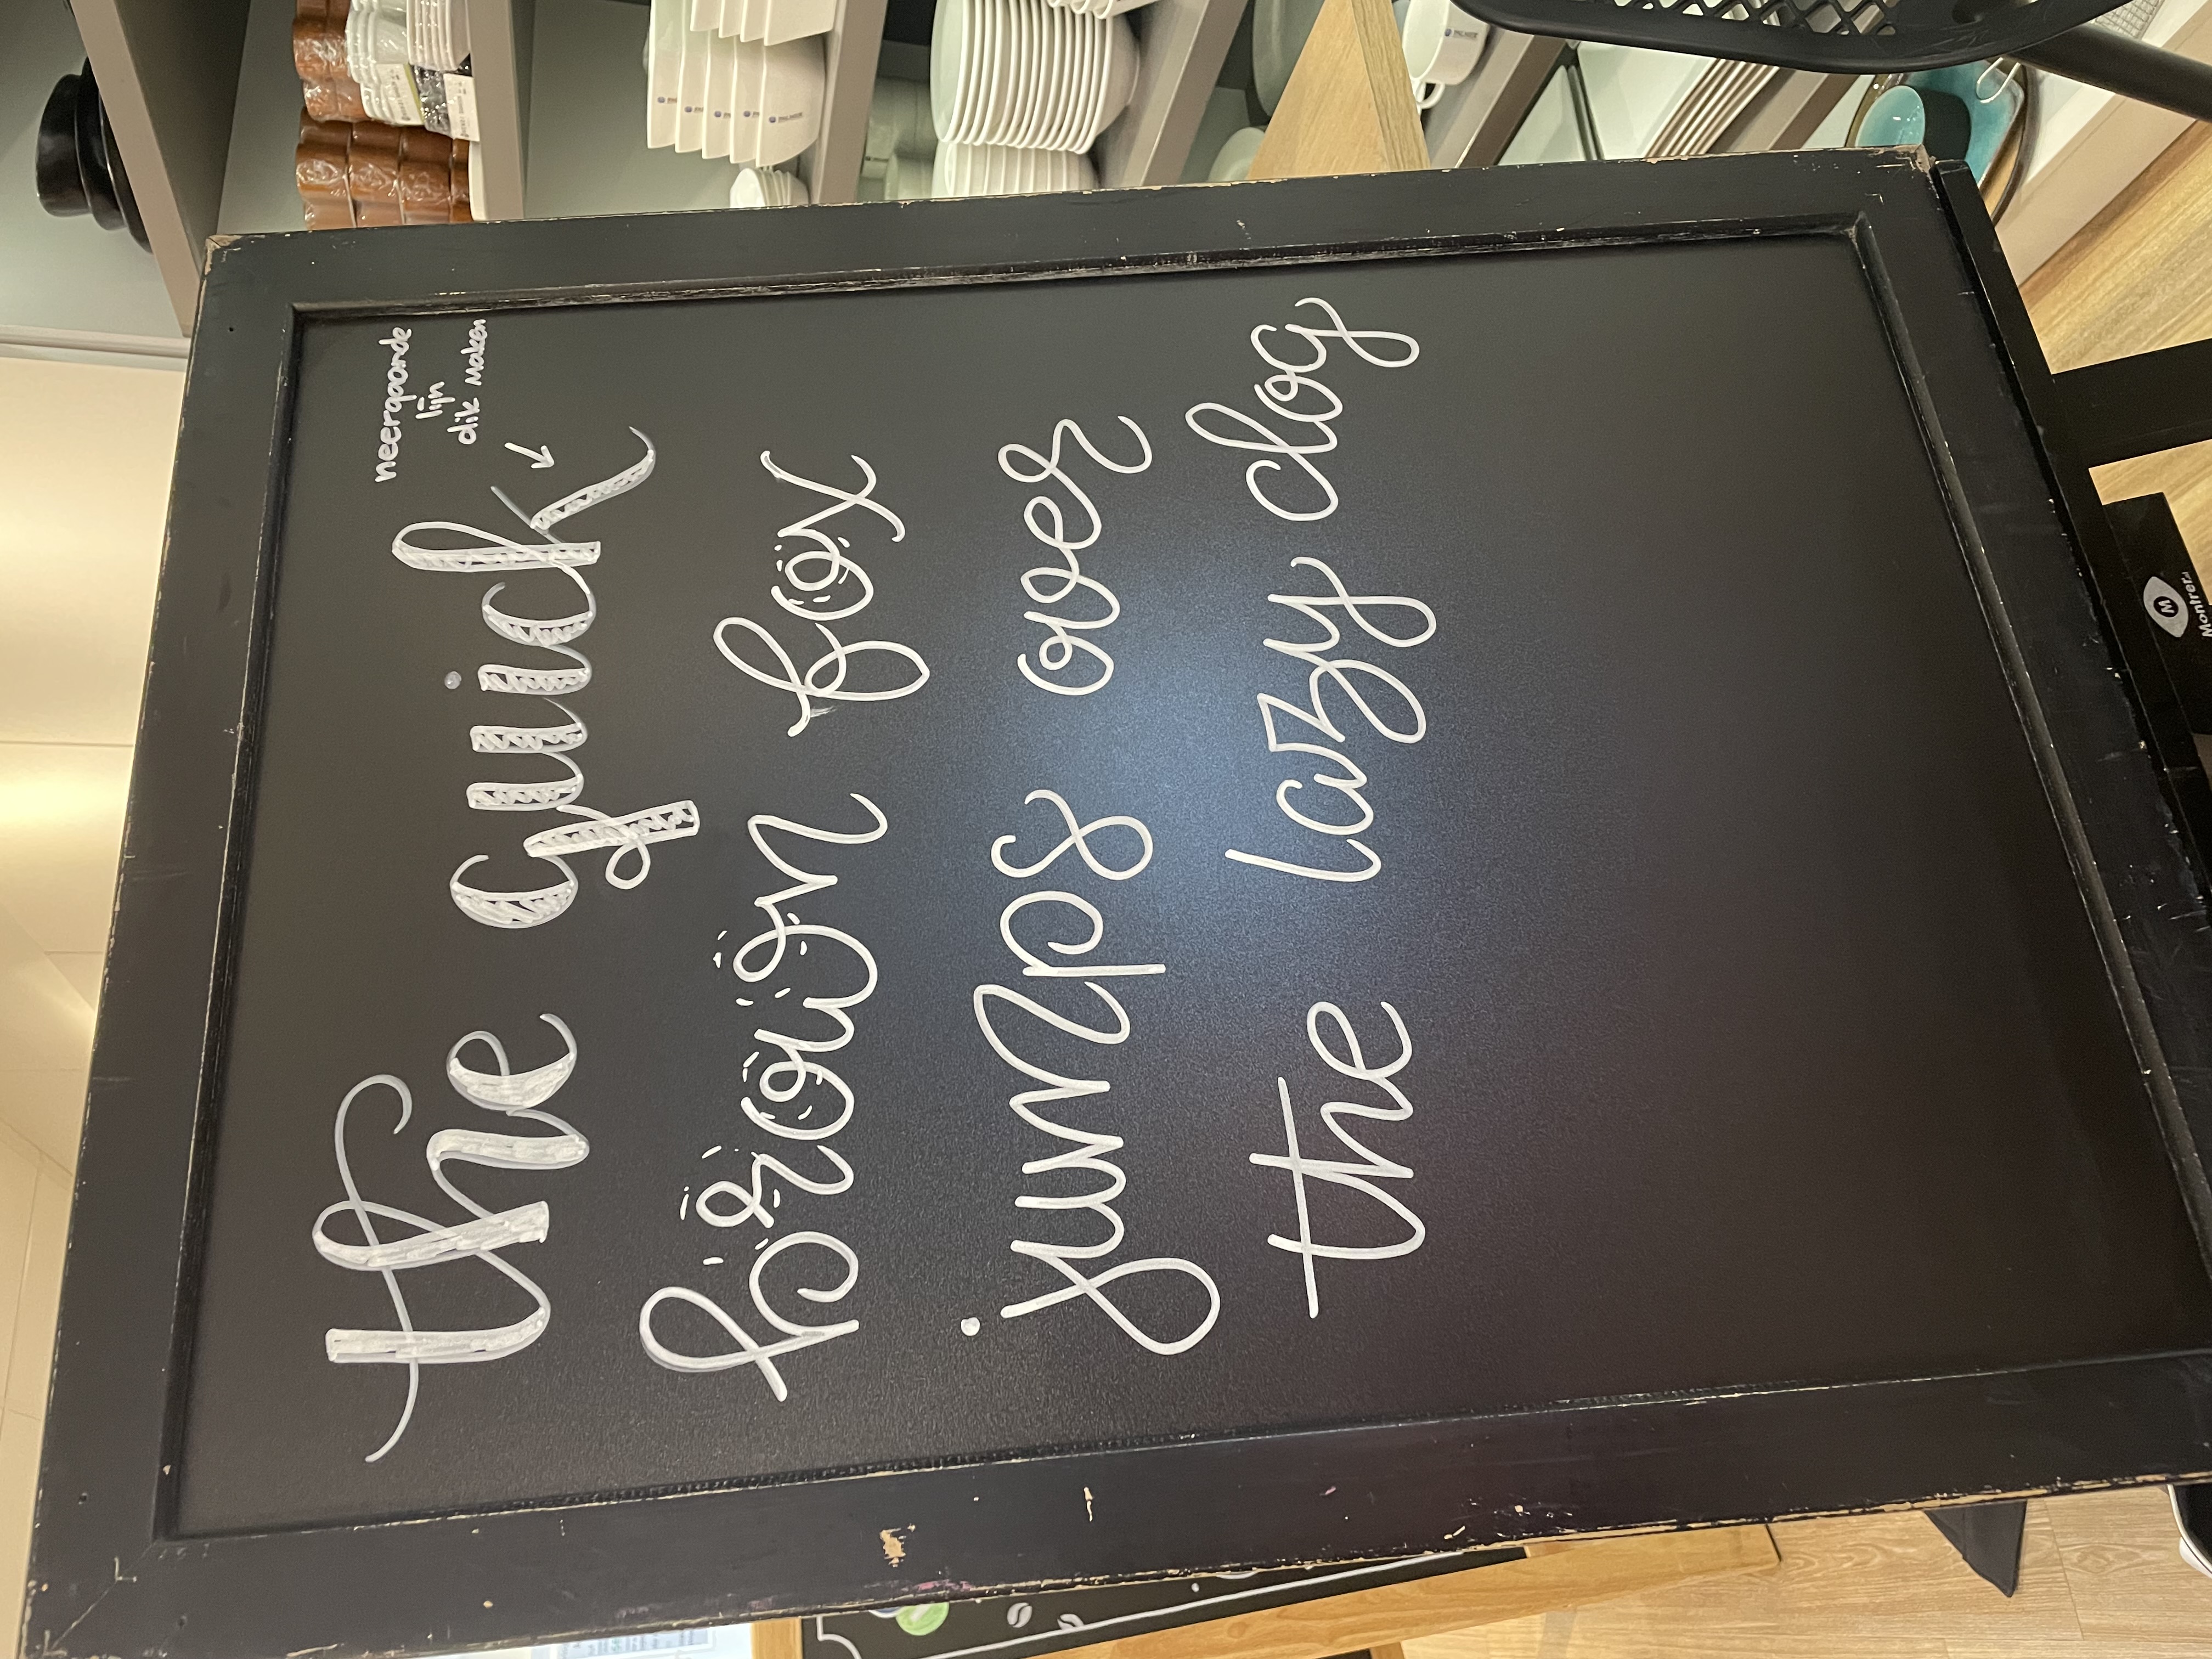 neergaande
lijn
dik maken
the quick
brown fox
jumps over
the lazy dog
M
Montrer.nl